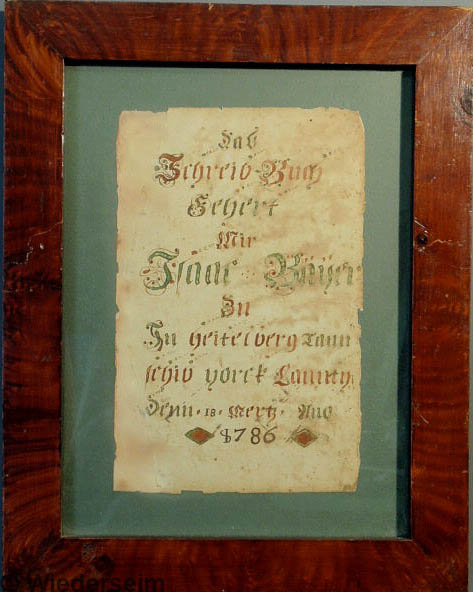 Das
Schreib Buch
Gehert
Mir
Isaac Bäyer
Zu
In Heitelberg Taun
schib yorck Caunty
Denn · 18 · Mertz · Ano
1786
© Wiederseim